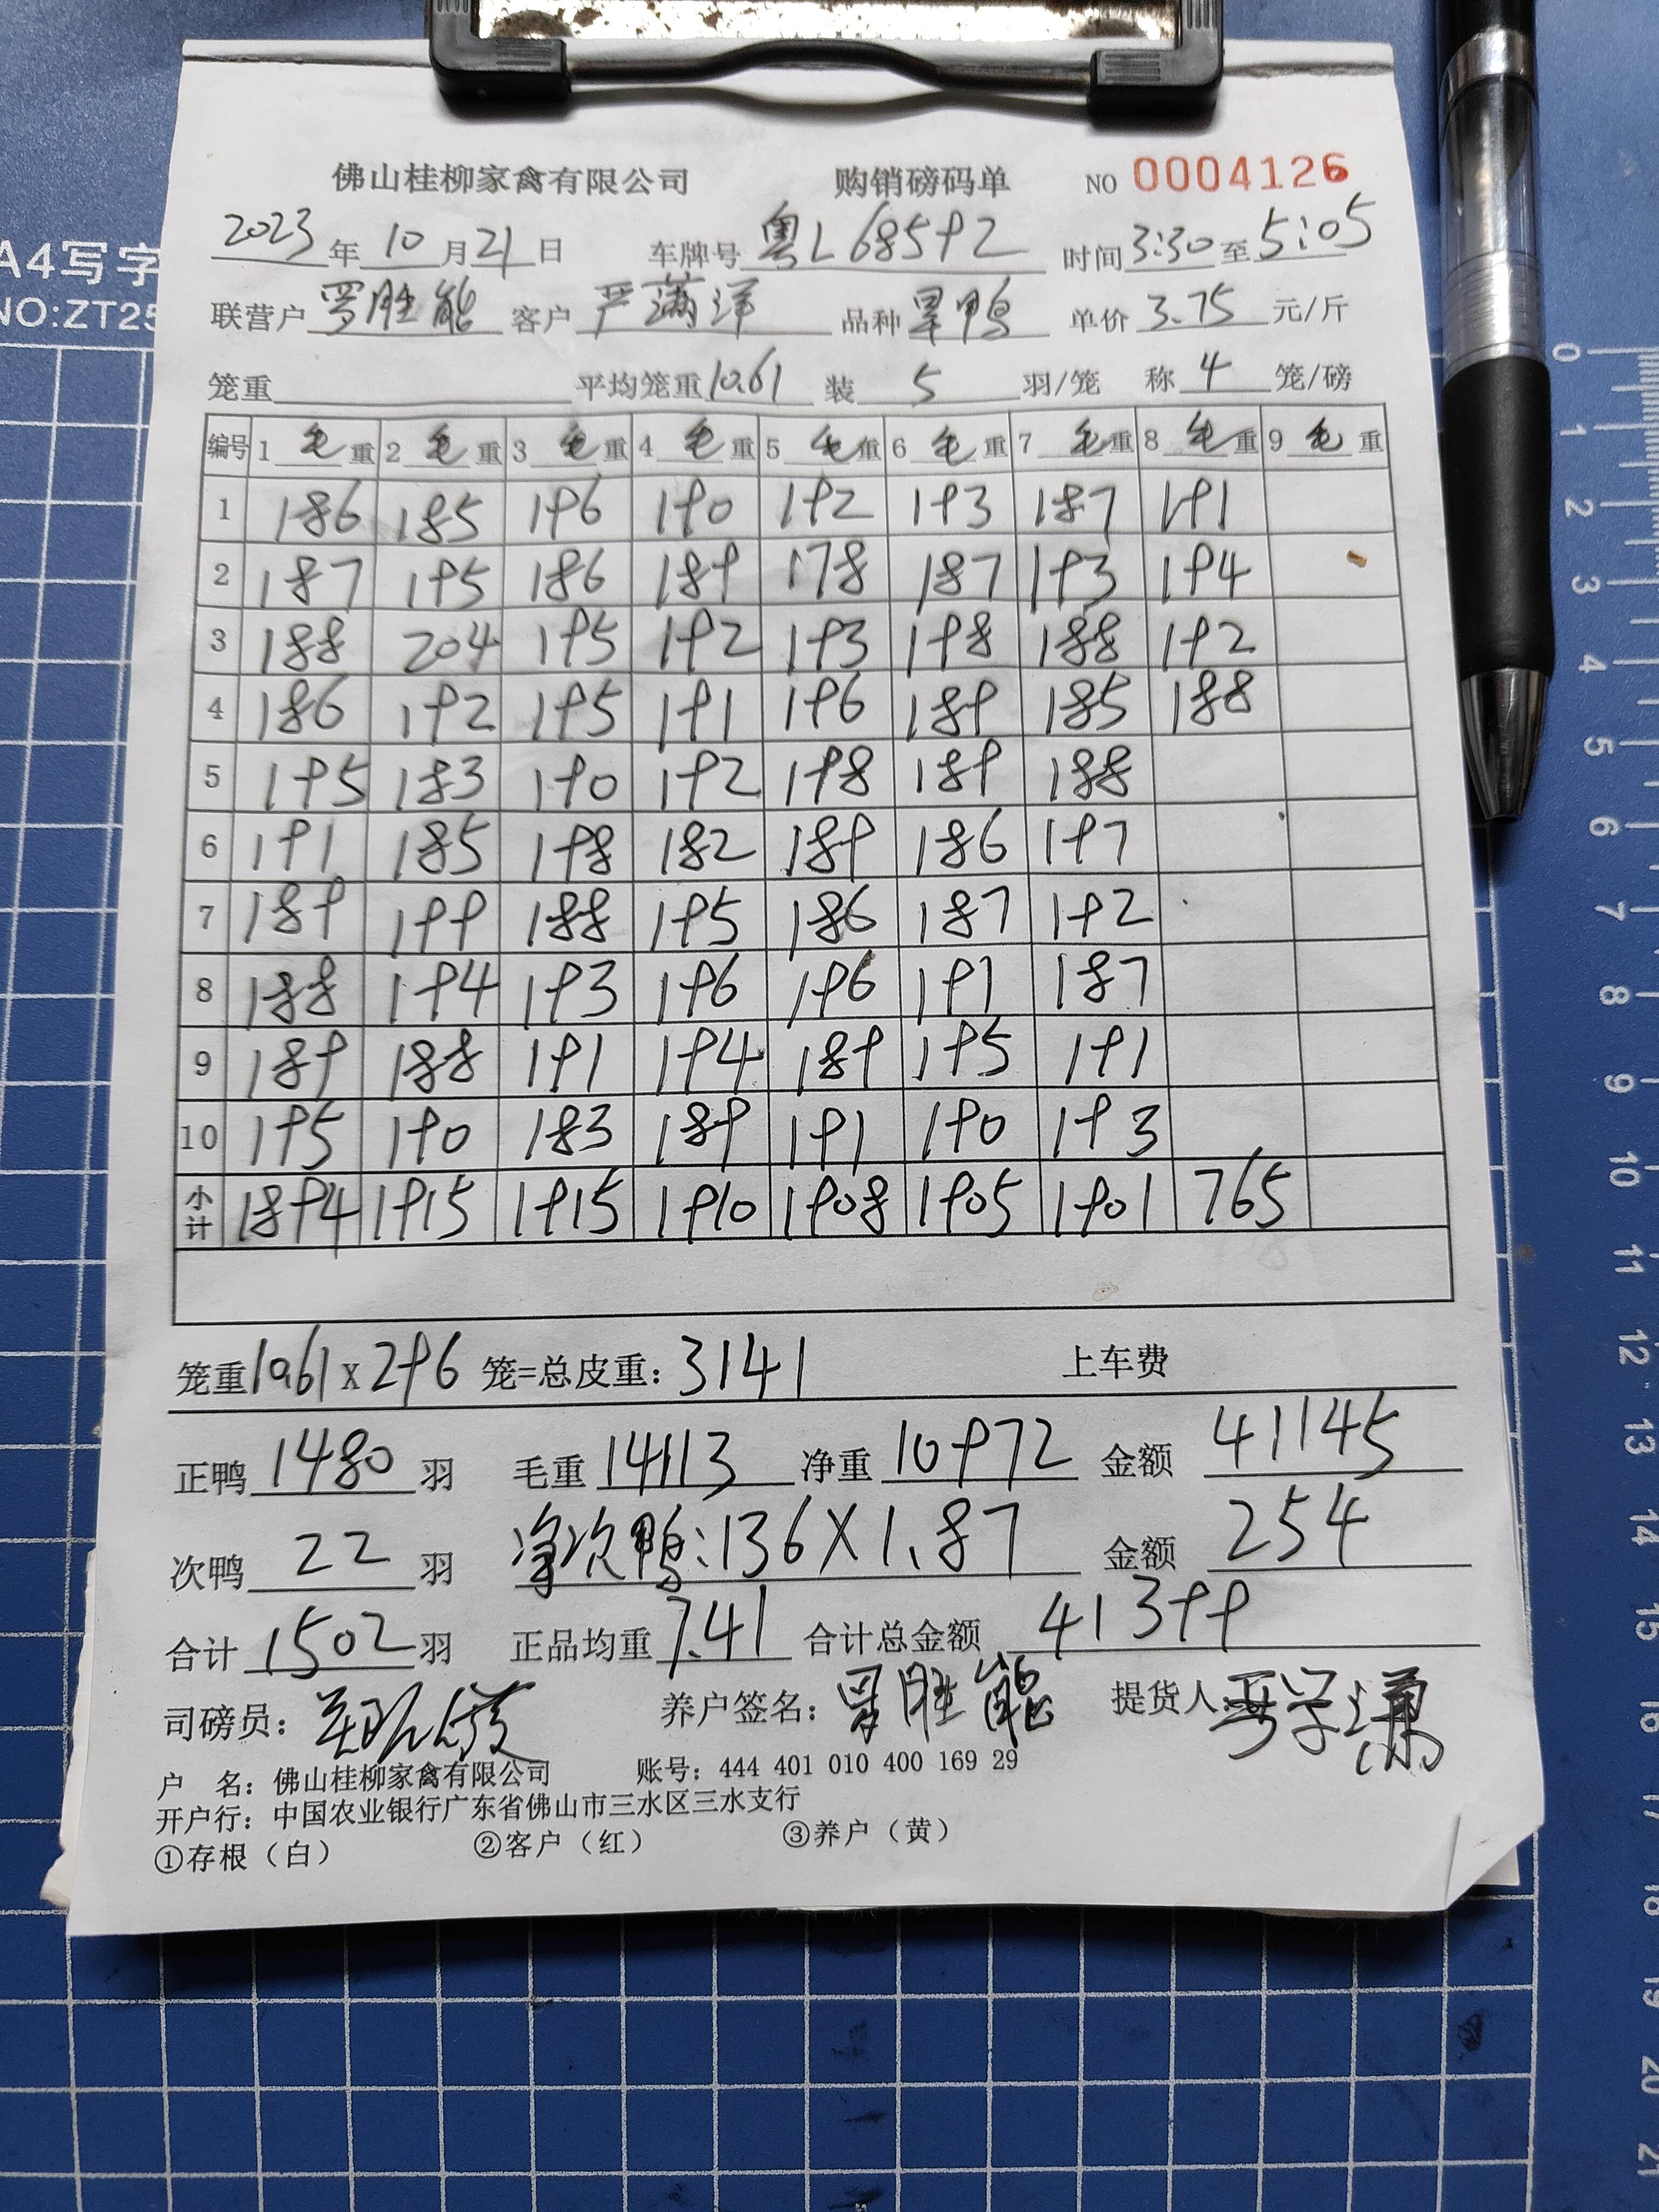 A4写字
NO:ZT25
佛山桂柳家禽有限公司 购销磅码单 NO 0004126
2023年10月21日 车牌号 粤L68592 时间3:30至5:05
联营户 罗胜能 客户 严满洋 品种 旱鸭 单价 3.75 元/斤
笼重 平均笼重10.61 装 5 羽/笼 称 4 笼/磅
编号 1 毛重 2 毛重 3 毛重 4 毛重 5 毛重 6 毛重 7 毛重 8 毛重 9 毛重
1 186 185 196 190 192 193 187 191
2 187 195 186 189 178 187 193 194
3 188 204 195 192 193 198 188 192
4 186 192 195 191 196 189 185 188
5 195 183 190 192 198 189 188
6 191 185 198 182 189 186 197
7 189 199 188 195 186 187 192
8 188 194 193 196 196 191 187
9 189 188 191 194 189 195 191
10 195 190 183 189 191 190 193
小计 1894 1915 1915 1910 1908 1905 1901 765
笼重10.61x296 笼=总皮重：3141 上车费
正鸭 1480 羽 毛重 14113 净重 10972 金额 41145
次鸭 22 羽 净次鸭:136X1.87 金额 254
合计 1502 羽 正品均重 7.41 合计总金额 41399
司磅员： 养户签名：罗胜能 提货人
户 名：佛山桂柳家禽有限公司 账号：444 401 010 400 169 29
开户行：中国农业银行广东省佛山市三水区三水支行
①存根（白） ②客户（红） ③养户（黄）
0 1 2 3 4 5 6 7 8 9 10 11 12 13 14 15 16 17 18 19 20 21